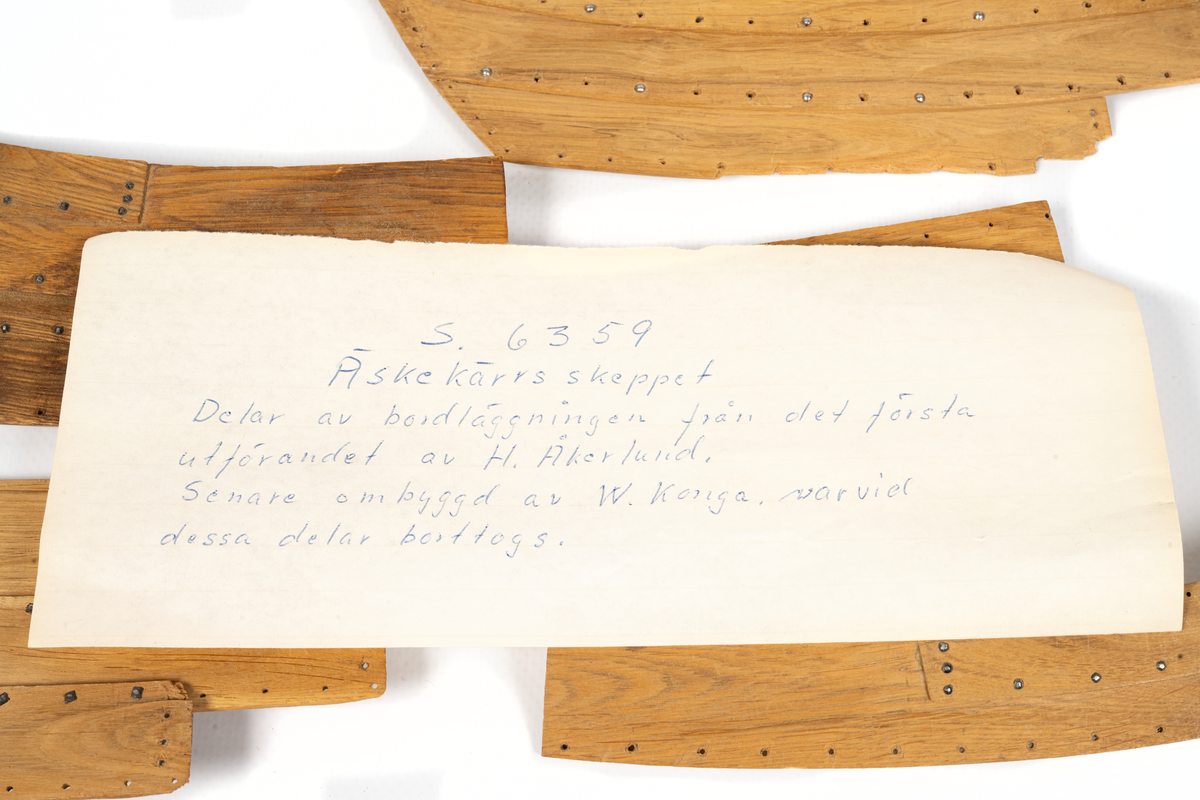 S. 6359
Äskekärrs skeppet
Delar av bordläggningen från det första
utförandet av H. Åkerlund.
Senare ombyggd av W. Konga, varvid
dessa delar borttogs.